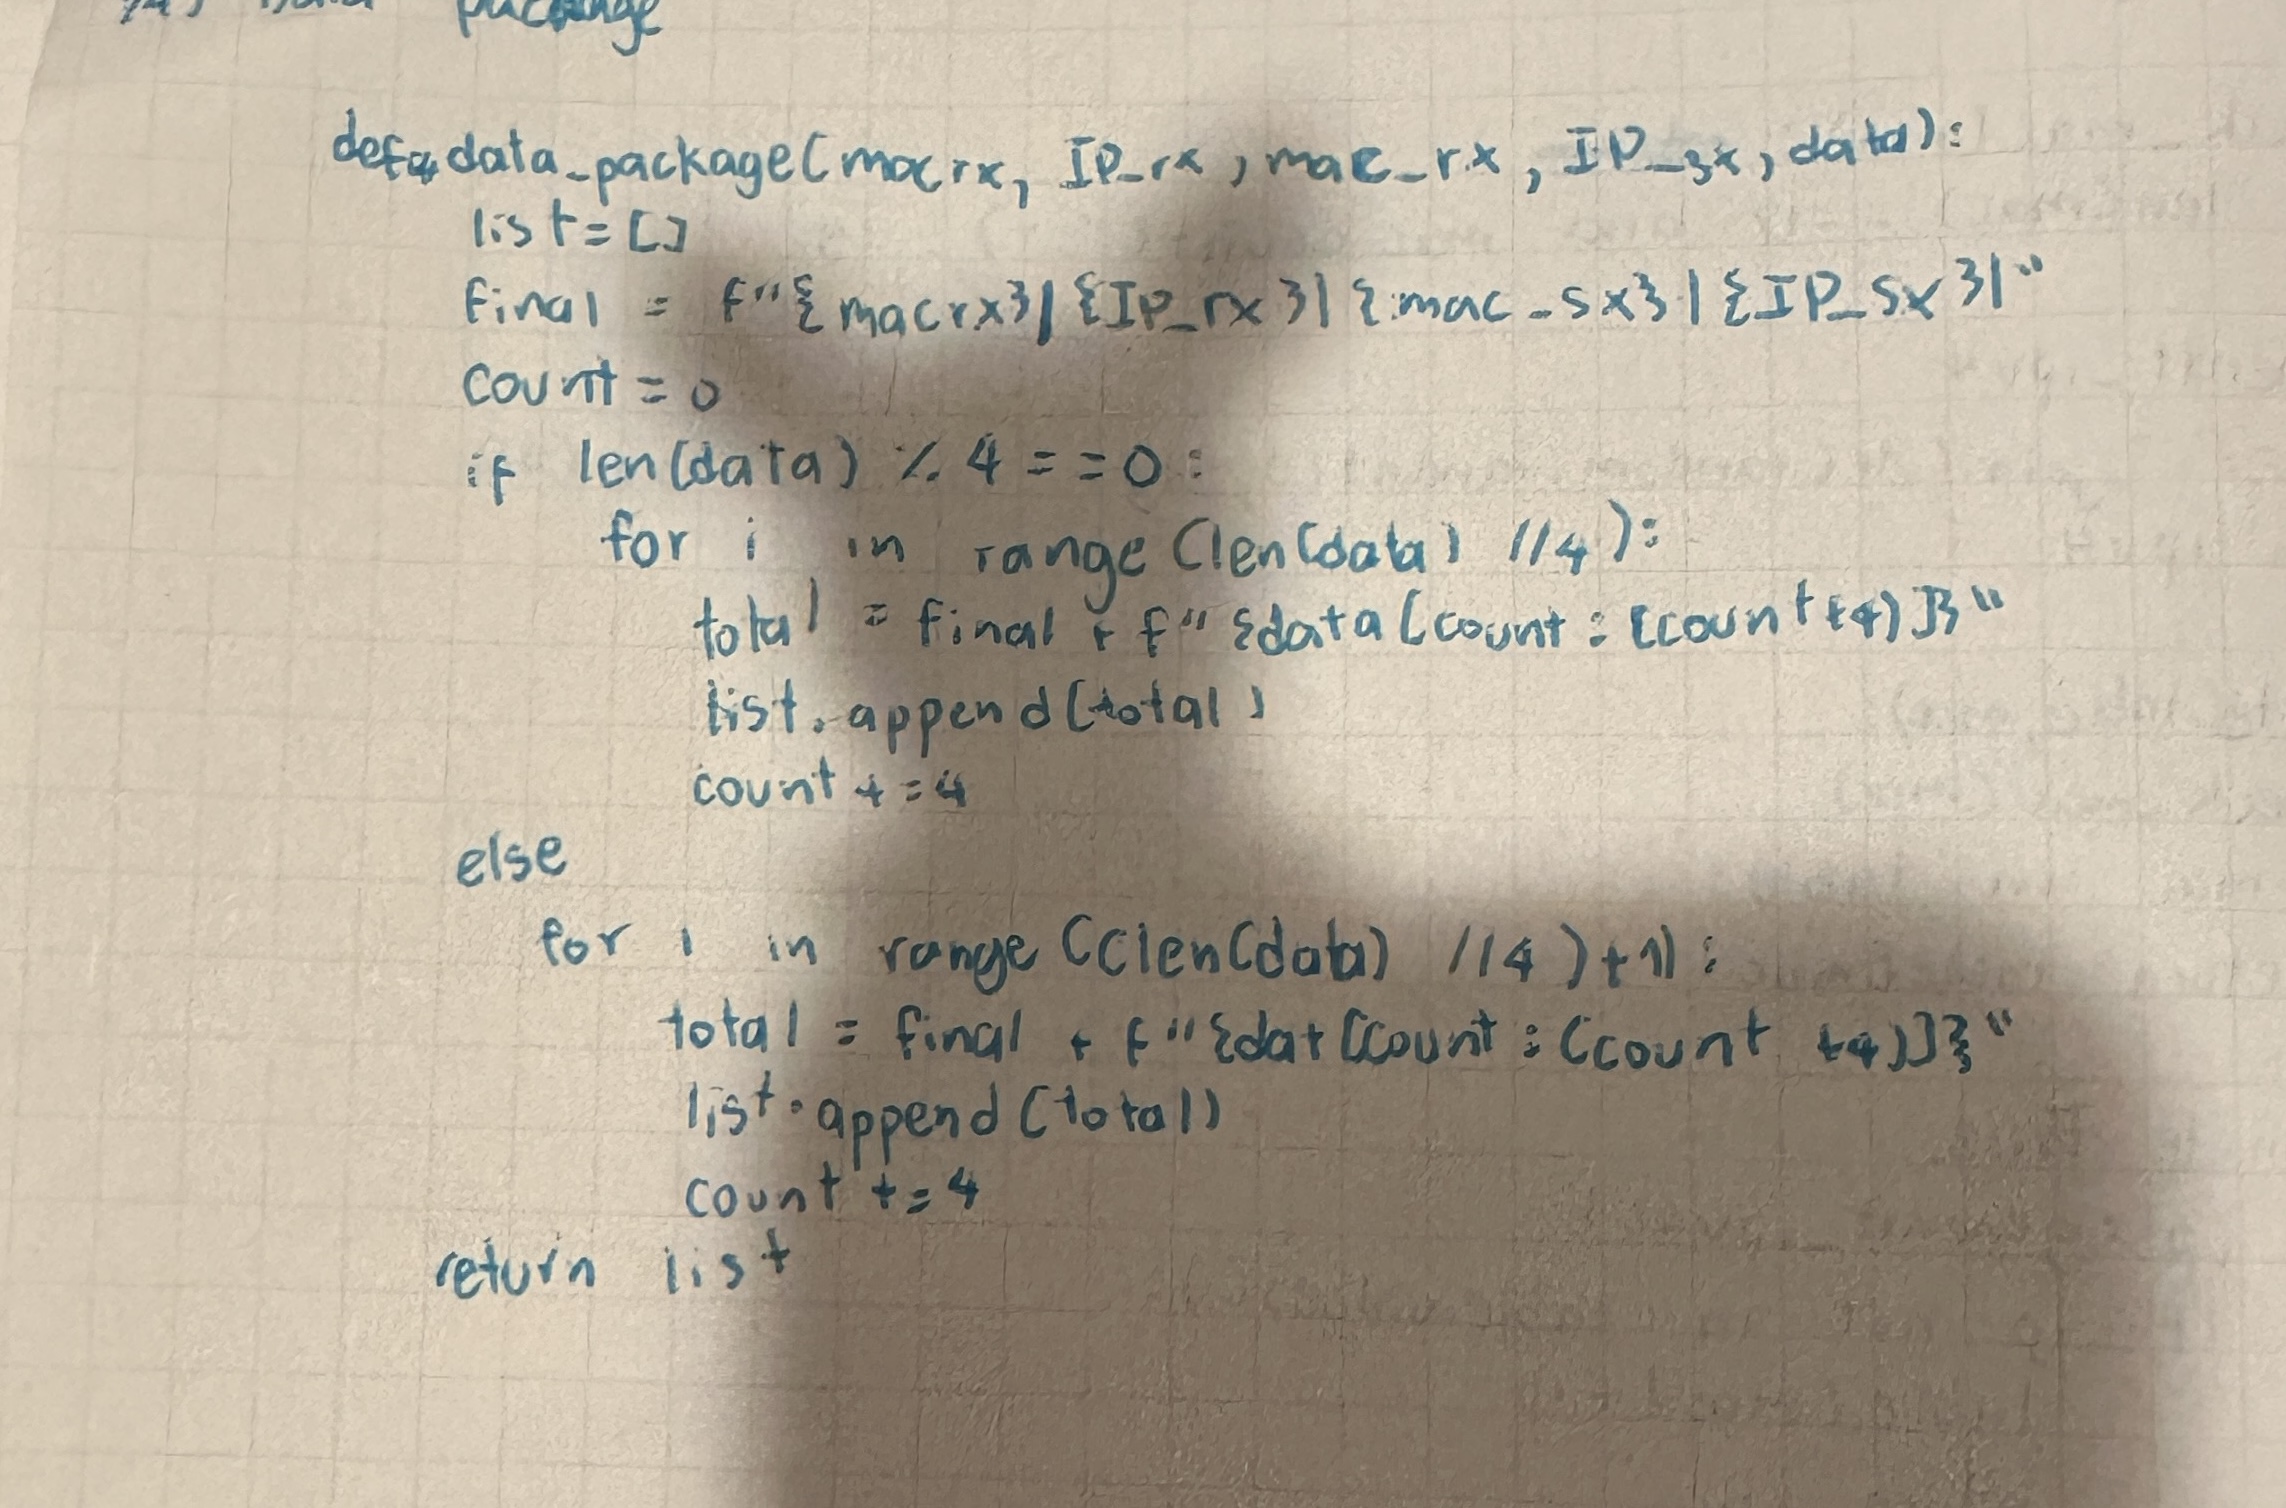 package
def data_package(macrx, IP_rx, mac_rx, IP_sx, data):
list=[]
final = f"{macrx}|{IP_rx}|{mac_sx}|{IP_sx}|"
count=0
if len(data) % 4 ==0:
for i in range (len(data) //4):
total = final + f"{data[count:(count+4)]}"
list.append(total)
count +=4
else
for i in range ((len(data) //4)+1):
total = final + f"{dat[count:(count +4)]}"
list.append(total)
count +=4
return list